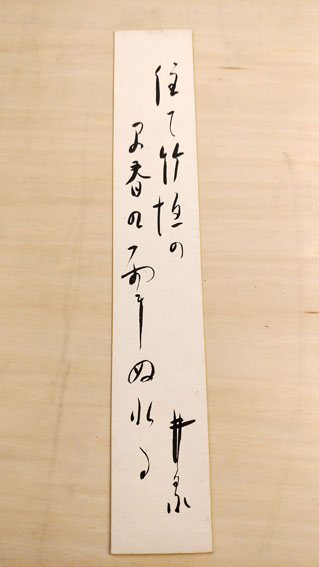 住て竹垣の
早春の雨にぬれる
井泉